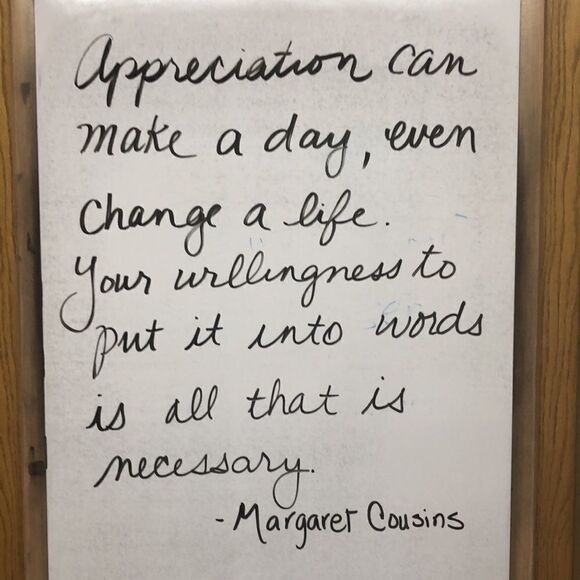 Appreciation can
make a day, even
change a life.
Your willingness to
put it into words
is all that is
necessary.
- Margaret Cousins